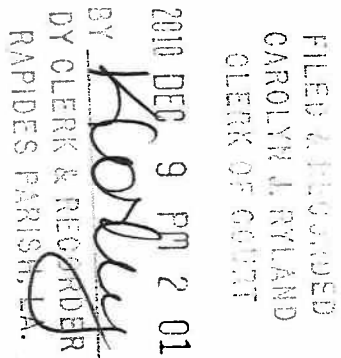 FILED & RECORDED
CAROLYN J. RYLAND
CLERK OF COURT
2010 DEC 9 PM 2 01
BY
DY CLERK & RECORDER
RAPIDES PARISH, LA.